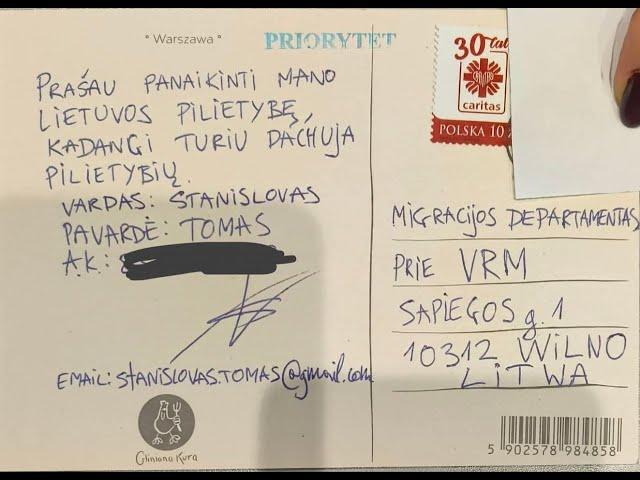 ° Warszawa °
PRIORYTET
PRAŠAU PANAIKINTI MANO
LIETUVOS PILIETYBĘ
KADANGI TURIU DAChUJA
PILIETYBIŲ.
VARDAS: STANISLOVAS
PAVARDĖ: TOMAS
A.K.:
EMAIL: STANISLOVAS.TOMAS@gmail.com
Gliniana Kura
30 lat
caritas
POLSKA 10
MIGRACIJOS DEPARTAMENTAS
PRIE VRM
SAPIEGOS g. 1
10312 WILNO
LITWA
5 902578 984858